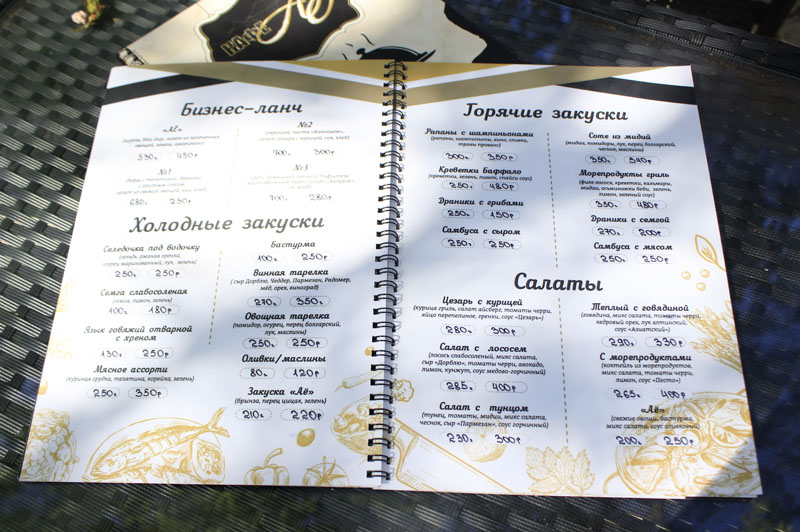 Кафе Аё
Бизнес-ланч
«Аё»
530г 450р
№2
700г 300р
№1
680г 250р
№3
700г 280р
Холодные закуски
Селедочка под водочку
(сельдь, ржаная гренка,
огурец маринованный, лук, зелень)
250г 250р
Семга слабосоленая
(семга, лимон, зелень)
100г 180р
Язык говяжий отварной
с хреном
130г 250р
Мясное ассорти
(куриная грудка, телятина, корейка, зелень)
250г 350р
Бастурма
100г 250р
Винная тарелка
(сыр Дорблю, Чеддер, Пармезан, Радомер,
мёд, орех, виноград)
270г 350р
Овощная тарелка
(помидор, огурец, перец болгарский,
лук, маслины)
250г 250р
Оливки/маслины
80г 120р
Закуска «Аё»
(брынза, перец цицак, зелень)
210г 220р
Горячие закуски
Рапаны с шампиньонами
(рапаны, шампиньоны, вино, сливки,
травы прованс)
300г 350р
Креветки баффало
(креветки, зелень, лимон, спайси соус)
250г 480р
Драники с грибами
250г 150р
Самбуса с сыром
250г 250р
Соте из мидий
(мидии, помидоры, лук, перец болгарский,
чеснок, маслины)
350г
Морепродукты гриль
(филе лосося, креветки, кальмары,
мидии, осьминожки беби, зелень,
лимон, зеленый соус)
350г 480р
Драники с семгой
270г 200р
Самбуса с мясом
250г 250р
Салаты
Цезарь с курицей
(курица гриль, салат айсберг, томаты черри,
яйцо перепелиное, гренки, соус «Цезарь»)
280г 300р
Салат с лососем
(лосось слабосоленый, микс салата,
сыр «Дорблю», томаты черри, авокадо,
лимон, кунжут, соус медово-горчичный)
285г 400р
Салат с тунцом
(тунец, томаты, мидии, микс салата,
чеснок, сыр «Пармезан», соус горчичный)
230г 300р
Теплый с говядиной
(говядина, микс салата, томаты черри,
кедровый орех, лук ялтинский,
соус «Азиатский»)
290г 330р
С морепродуктами
(коктейль из морепродуктов,
микс салата, томаты черри,
лимон, соус «Песто»)
265г 400р
«Аё»
(свежие овощи, бастурма,
микс салата, соус оливковый)
200г 250р